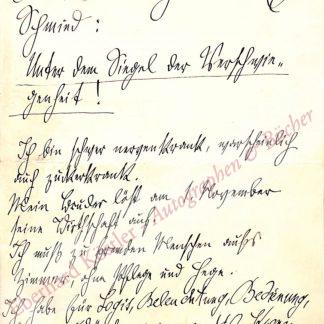 Schmied:
Unter dem Siegel der Verschwie-
genheit!
Ich bin schwer nervenkrank, warscheinlich
auch zuckerkrank.
Mein Bruder löst am November
seine Wirthschaft auf.
Ich muß zu fremden Menschen aufs
Zimmer, ohne Pflege und Hege.
Ich habe für Logis, Beleuchtung, Bedienung,
Eberhard Köstler Autographen & Bücher